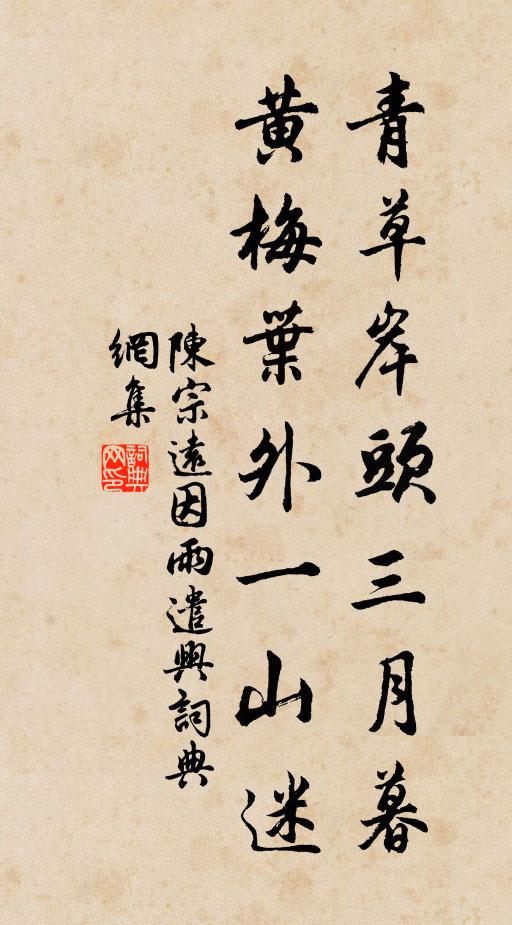 青草岸頭三月暮
黄梅葉外一山迷
陳宗遠因雨遣興詞典
網集
詞典
网印